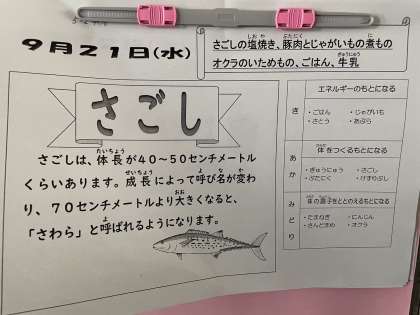 9月21日(水)
さごしの塩焼き、豚肉とじゃがいもの煮もの
オクラのいためもの、ごはん、牛乳
さごし
さごしは、体長が40～50センチメートル
くらいあります。成長によって呼び名が変わ
り、70センチメートルより大きくなると、
「さわら」と呼ばれるようになります。
エネルギーのもとになる
き
・ごはん ・じゃがいも
・さとう ・あぶら
体をつくるもとになる
あか
・ぎゅうにゅう ・さごし
・ぶたにく ・けずりぶし
体の調子をととのえるもとになる
みどり
・たまねぎ ・にんじん
・さんどまめ ・オクラ